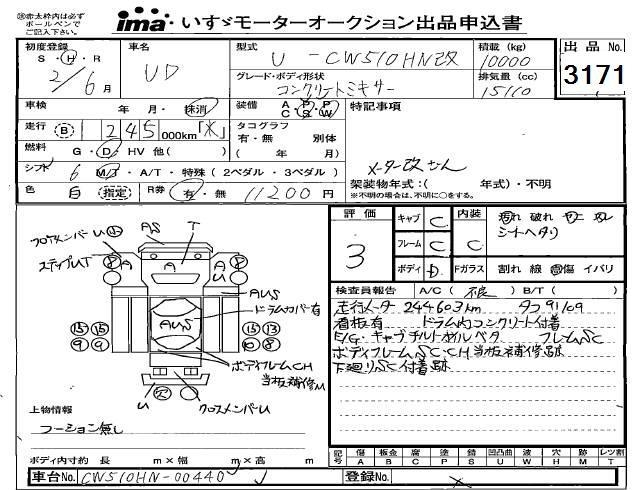 ※赤太枠内は必ず
ボールペンで
ご記入下さい。
ima いすゞモーターオークション出品申込書
初度登録 車名 型式 U-CW510HN改 積載(kg) 10000 出品No.
S・H・R 2/6月 UD グレード・ボディ形状 コンクリートミキサー 排気量(cc) 15110 3171
車検 年 月・抹消 装備 A P P C S W 特記事項
走行 B 1 245 000km「*」 タコグラフ 有・無 別体
燃料 G・D・HV 他( ) ( 年 月)
シフト 6 M/T・A/T・特殊(2ペダル・3ペダル) メーター改ざん
色 白 指定 R券 有・無 11200円 架装物年式:( 年式)・不明
※不明の場合は、不明に○をする。
評価 キャブ C 内装 汚れ 破れ
3 フレーム C C シートヘタリ
ボディ D Fガラス 割れ 線 傷 イバリ
検査員報告 A/C( 不良 ) B/T( )
走行メーター 244603km タコ 91109
看板有 ドラム内コンクリート付着
E/G・キャブチルトオイルベタ フレームSC
ボディフレームSC・CH 当板補修跡
下廻りSC付着跡
クロスメンバーU 15 AS T
ステップUT 8 A A A 8
AUS
ドラムカバー有
AUS
15 15 15 13
9 9 10 8
ボディフレームCH
当板補修U
U 欠 クロスメンバーU
上物情報
フーション無し
ボディ内寸約 長 m×幅 m×高 m
記号 傷 板金 腐 塗 錆 凹凸曲 波 穴 跡 レツ割
A B C P S U W H M T
車台No. CW510HN-00440 登録No.